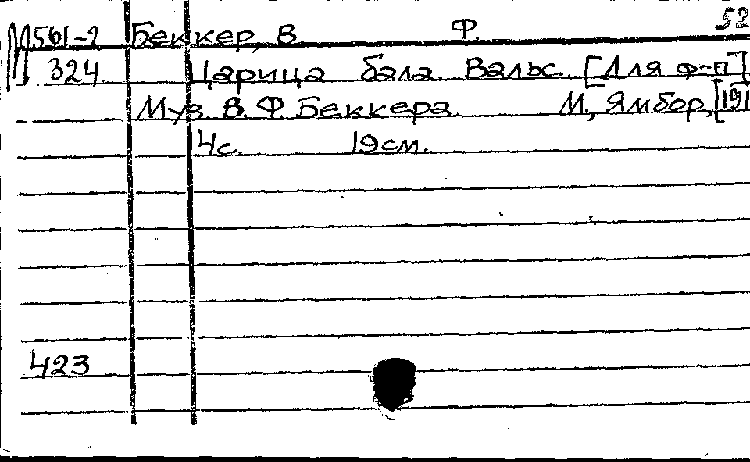 52
М561-2 Беккер, В. Ф.
324 Царица бала. Вальс. [Для ф-п]
Муз. В. Ф. Беккера. М., Ямбор, [191
4с. 19см.
423